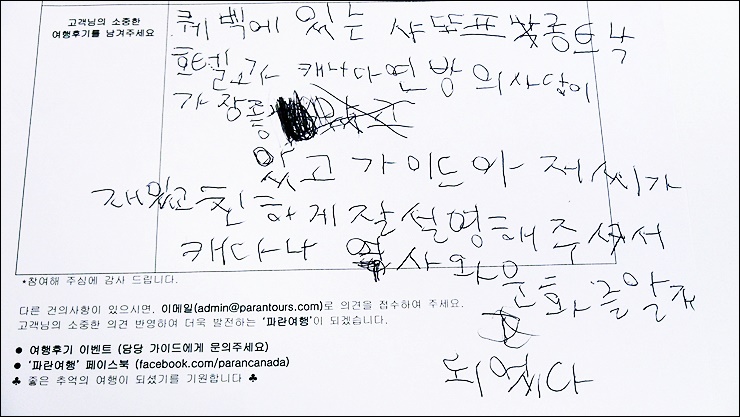 고객님의 소중한
여행후기를 남겨주세요
퀘벡에 있는 샤또프 종트낙
호텔과 캐나다연방의사당이
가장 좋
았고 가이드아저씨가
재밌고 친하게 잘 설명해 주셔서
캐다나 역사와 문화를 알게
되었다
*참여해 주심에 감사 드립니다.
다른 건의사항이 있으시면, 이메일(admin@parantours.com)로 의견을 접수하여 주세요.
고객님의 소중한 의견 반영하여 더욱 발전하는 '파란여행'이 되겠습니다.
● 여행후기 이벤트 (담당 가이드에게 문의주세요)
● '파란여행' 페이스북 (facebook.com/parancanada)
♣ 좋은 추억의 여행이 되셨기를 기원합니다 ♣